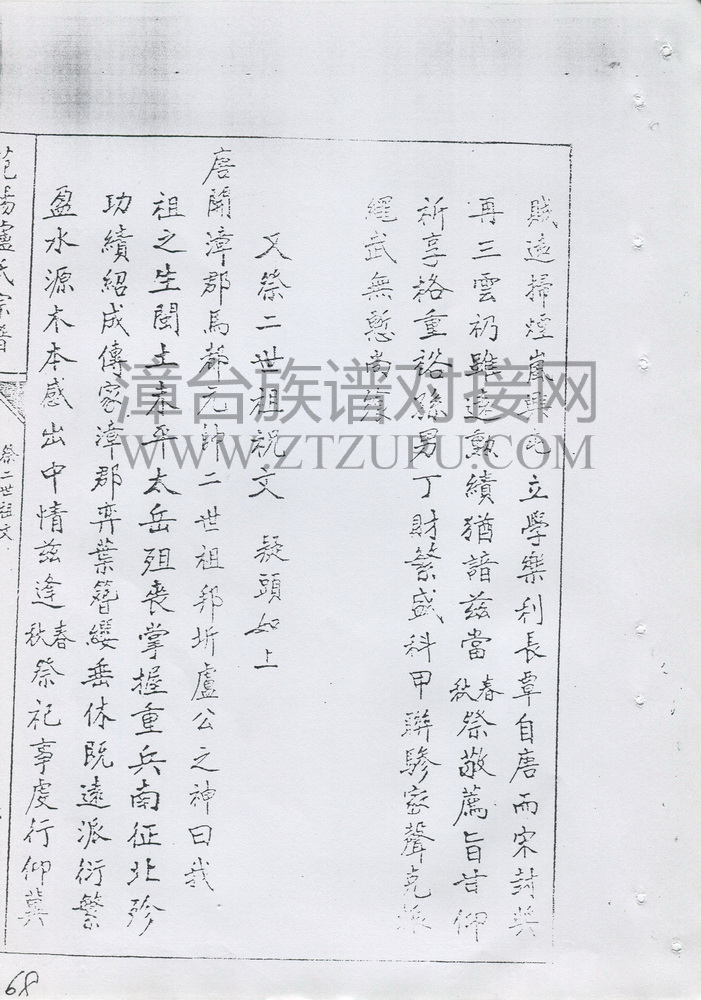 賊遠掃煙嵐興屯立學樂利長覃自唐而宋封奖
再三雲礽雖遠勲績猶諳兹當春秋祭敬薦旨甘仰
祈享格重裕孫男丁財繁盛科甲聯驂家聲克振
繩武無慙尚饗
又祭二世祖祝文 疑頭如上
唐開漳郡馬都元帥二世祖邦圻盧公之神曰我
祖之生閩土未平太岳殂喪掌握重兵南征北殄
功績紹成傳家漳郡弈葉簪纓垂休既遠派衍繁
盈水源木本感出中情兹逢春秋祭祀事虔行仰冀
范陽盧氏宗譜
祭二世祖文
68
漳台族谱对接网
WWW.ZTZUPU.COM